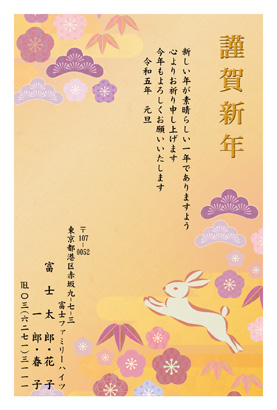 謹賀新年
新しい年が素晴らしい一年でありますよう
心よりお祈り申し上げます
今年もよろしくお願いいたします
令和五年 元旦
〒107-0052
東京都港区赤坂九-七-三
富士ファミリーハイツ
富士 太郎・花子
一郎・春子
℡〇三(六二七一)三一一一